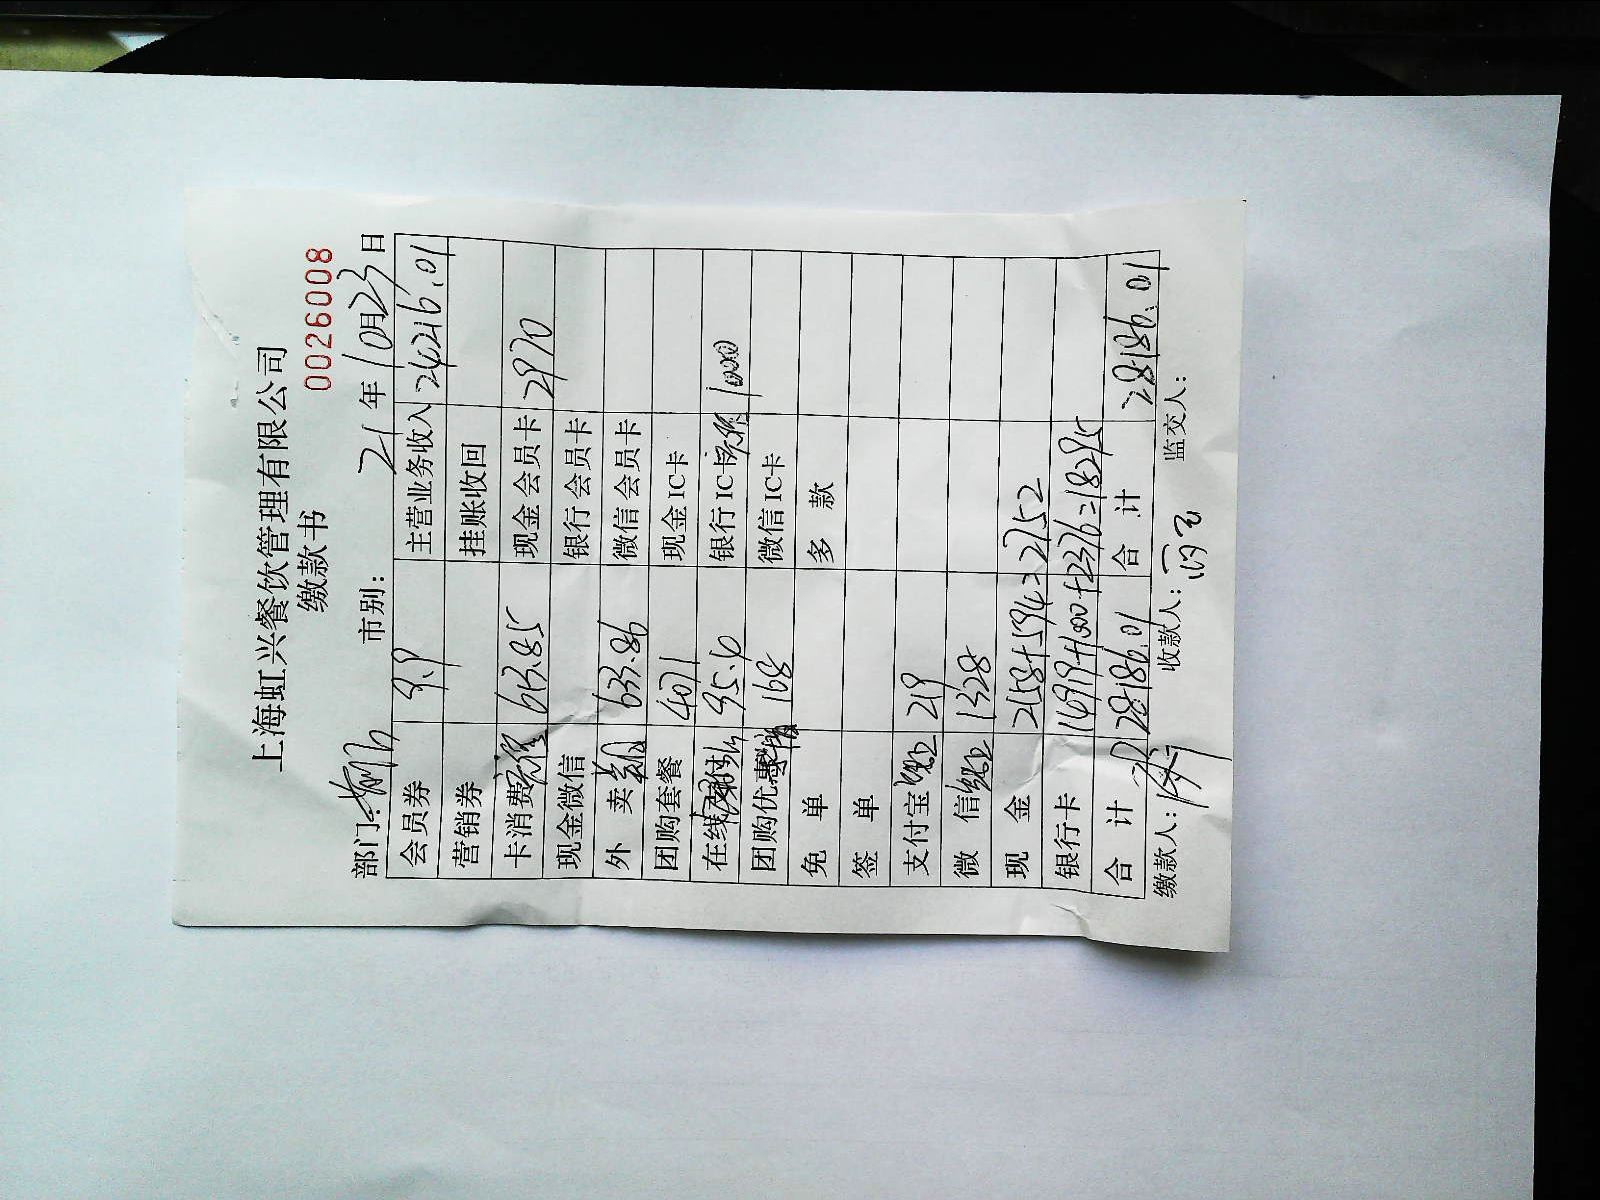 上海虹兴餐饮管理有限公司
缴款书
0026008
部门: 市别: 21年10月23日
会员券 9.9 主营业务收入 24216.01
营销券 挂账收回
卡消费 613.85 现金会员卡 2970
现金微信 银行会员卡
外卖 633.86 微信会员卡
团购套餐 4071 现金IC卡
在线支付 95.4 银行IC卡 1000
团购优惠 168 微信IC卡
免单 多款
签单
支付宝 219
微信 1328
现金 2158+594=2752
银行卡 14919+1000+2376=18295
合计 28186.01 合计 28186.01
缴款人: 收款人: 监交人: